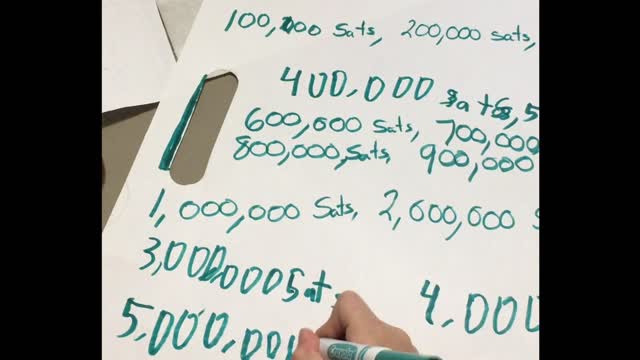 100,000 Sats, 200,000 sats,
400,000 sats, 5
600,000 sats, 700,000
800,000, sats, 900,000
1,000,000 Sats, 2,000,000 S
3,000,000 Sats
4,000
5,000,000